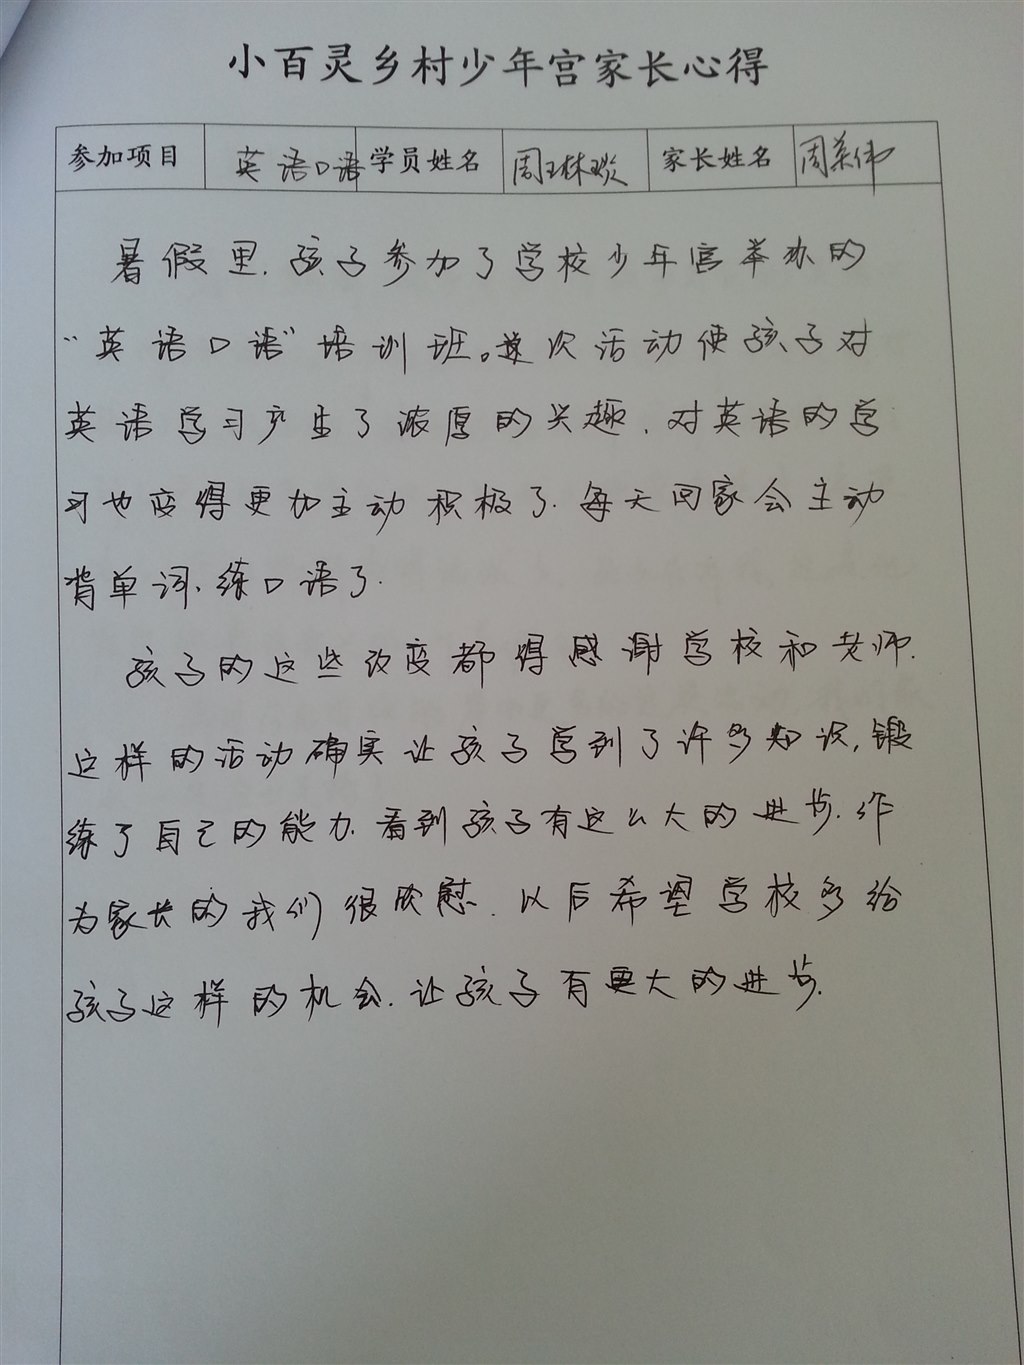 小百灵乡村少年宫家长心得
参加项目 英语口语 学员姓名 周玉林焱 家长姓名 周荣伟
暑假里,孩子参加了学校少年宫举办的
“英语口语”培训班。这次活动使孩子对
英语学习产生了浓厚的兴趣,对英语的学
习也变得更加主动积极了.每天回家会主动
背单词、练口语了.
孩子的这些改变都得感谢学校和老师.
这样的活动确实让孩子学到了许多知识,锻
练了自己的能力.看到孩子有这么大的进步.作
为家长的我们很欣慰.以后希望学校多给
孩子这样的机会.让孩子有更大的进步.